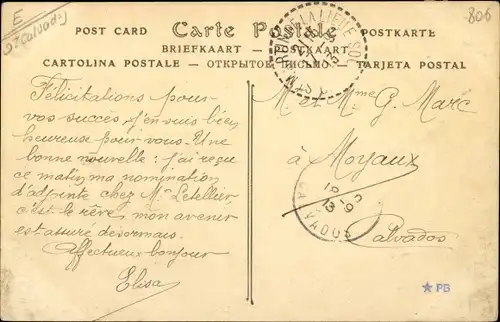 E
(Calvados)
806
POST CARD Carte Postale POSTKARTE
BRIEFKAART — POSTKAART
CARTOLINA POSTALE — ОТКРЫТОЕ ПИСЬМО — TARJETA POSTAL
Félicitations pour
vos succès, j'en suis bien
heureuse pour vous. Une
bonne nouvelle : j'ai reçu
ce matin ma nomination
d'adjointe chez Mr Letellier,
c'est le rêve, mon avenir
est assuré désormais.
Affectueux bonjour
Elisa
M. et Mme G. Marc
à Moyaux
Calvados
CALVADOS
13
★ PB